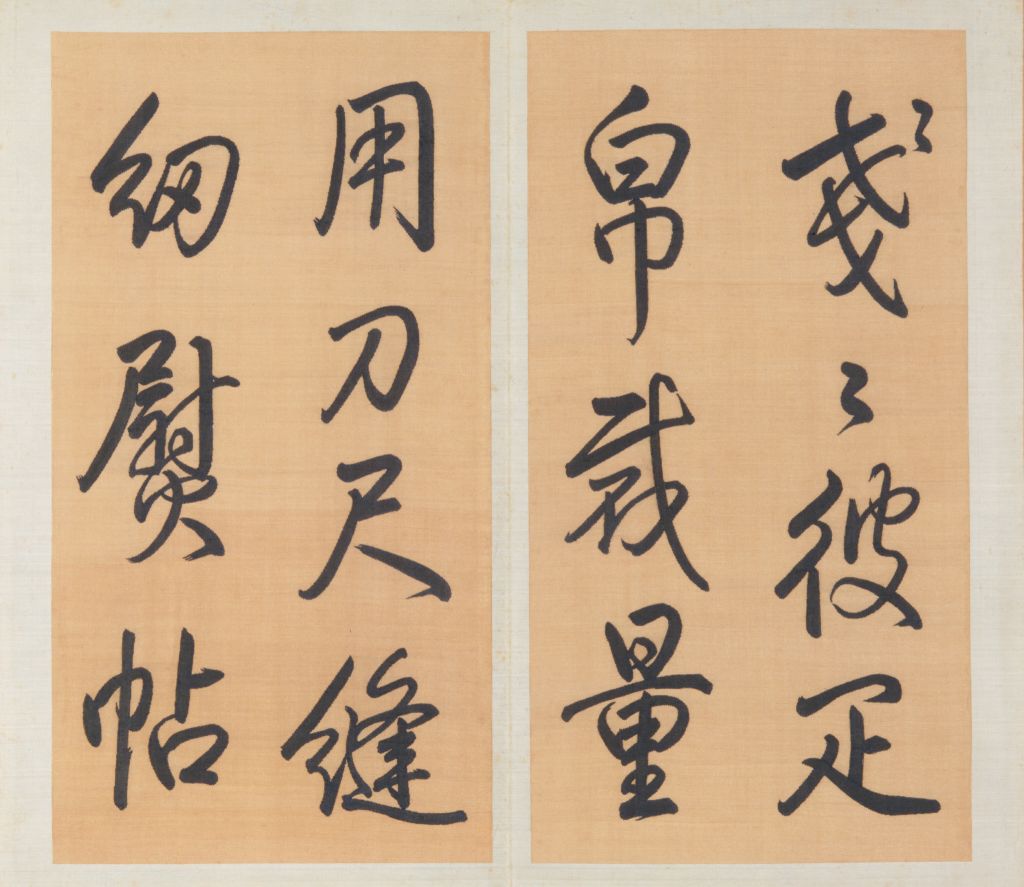 戔〻彼疋
帛裁量
用刀尺縫
紉熨帖